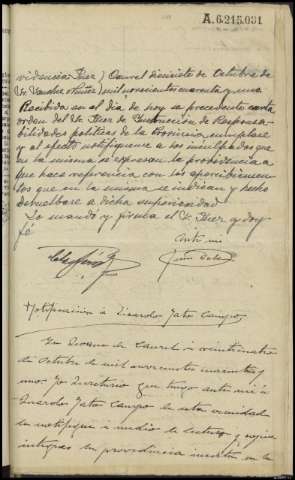 A.6.215.031
videncia Juez) Caurel diecisiete de Octubre de
Sr. mil novecientos cuarenta y uno
Recibida en el dia de hoy la precedente carta
orden del Sr. Juez de Instrucción de Responsa
bilidades politicas de la Provincia cumplase
y al efecto notifiquense a los inculpados que
en la misma se expresan la providencia a
que hace referencia con los apercibimien
tos que en la misma se indican y hecho
devuelvase a dicha superioridad.
Lo mando y firma el Sr. Juez y doy
fé
Ante mi
Notificación a Jato Campo
En de Caurel a veinticuatro
de Octubre de mil novecientos cuarenta y
uno. Yo Secretario que tengo ante mi á
Jato Campo de esta vecindad
le notifiqué á medio de lectura y copia
integras la providencia inserta en la